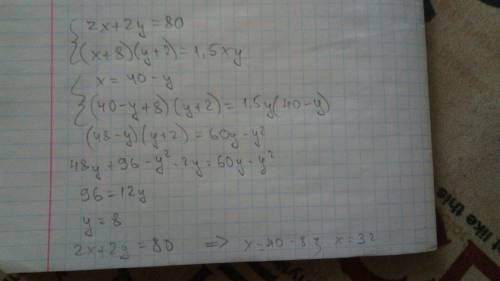 { 2x+2y=80
(x+8)(y+2)=1,5xy
{ x=40-y
(40-y+8)(y+2)=1,5y(40-y)
(48-y)(y+2)=60y-y²
48y+96-y²-2y=60y-y²
96=12y
y=8
2x+2y=80 => x=40-8; x=32
like this